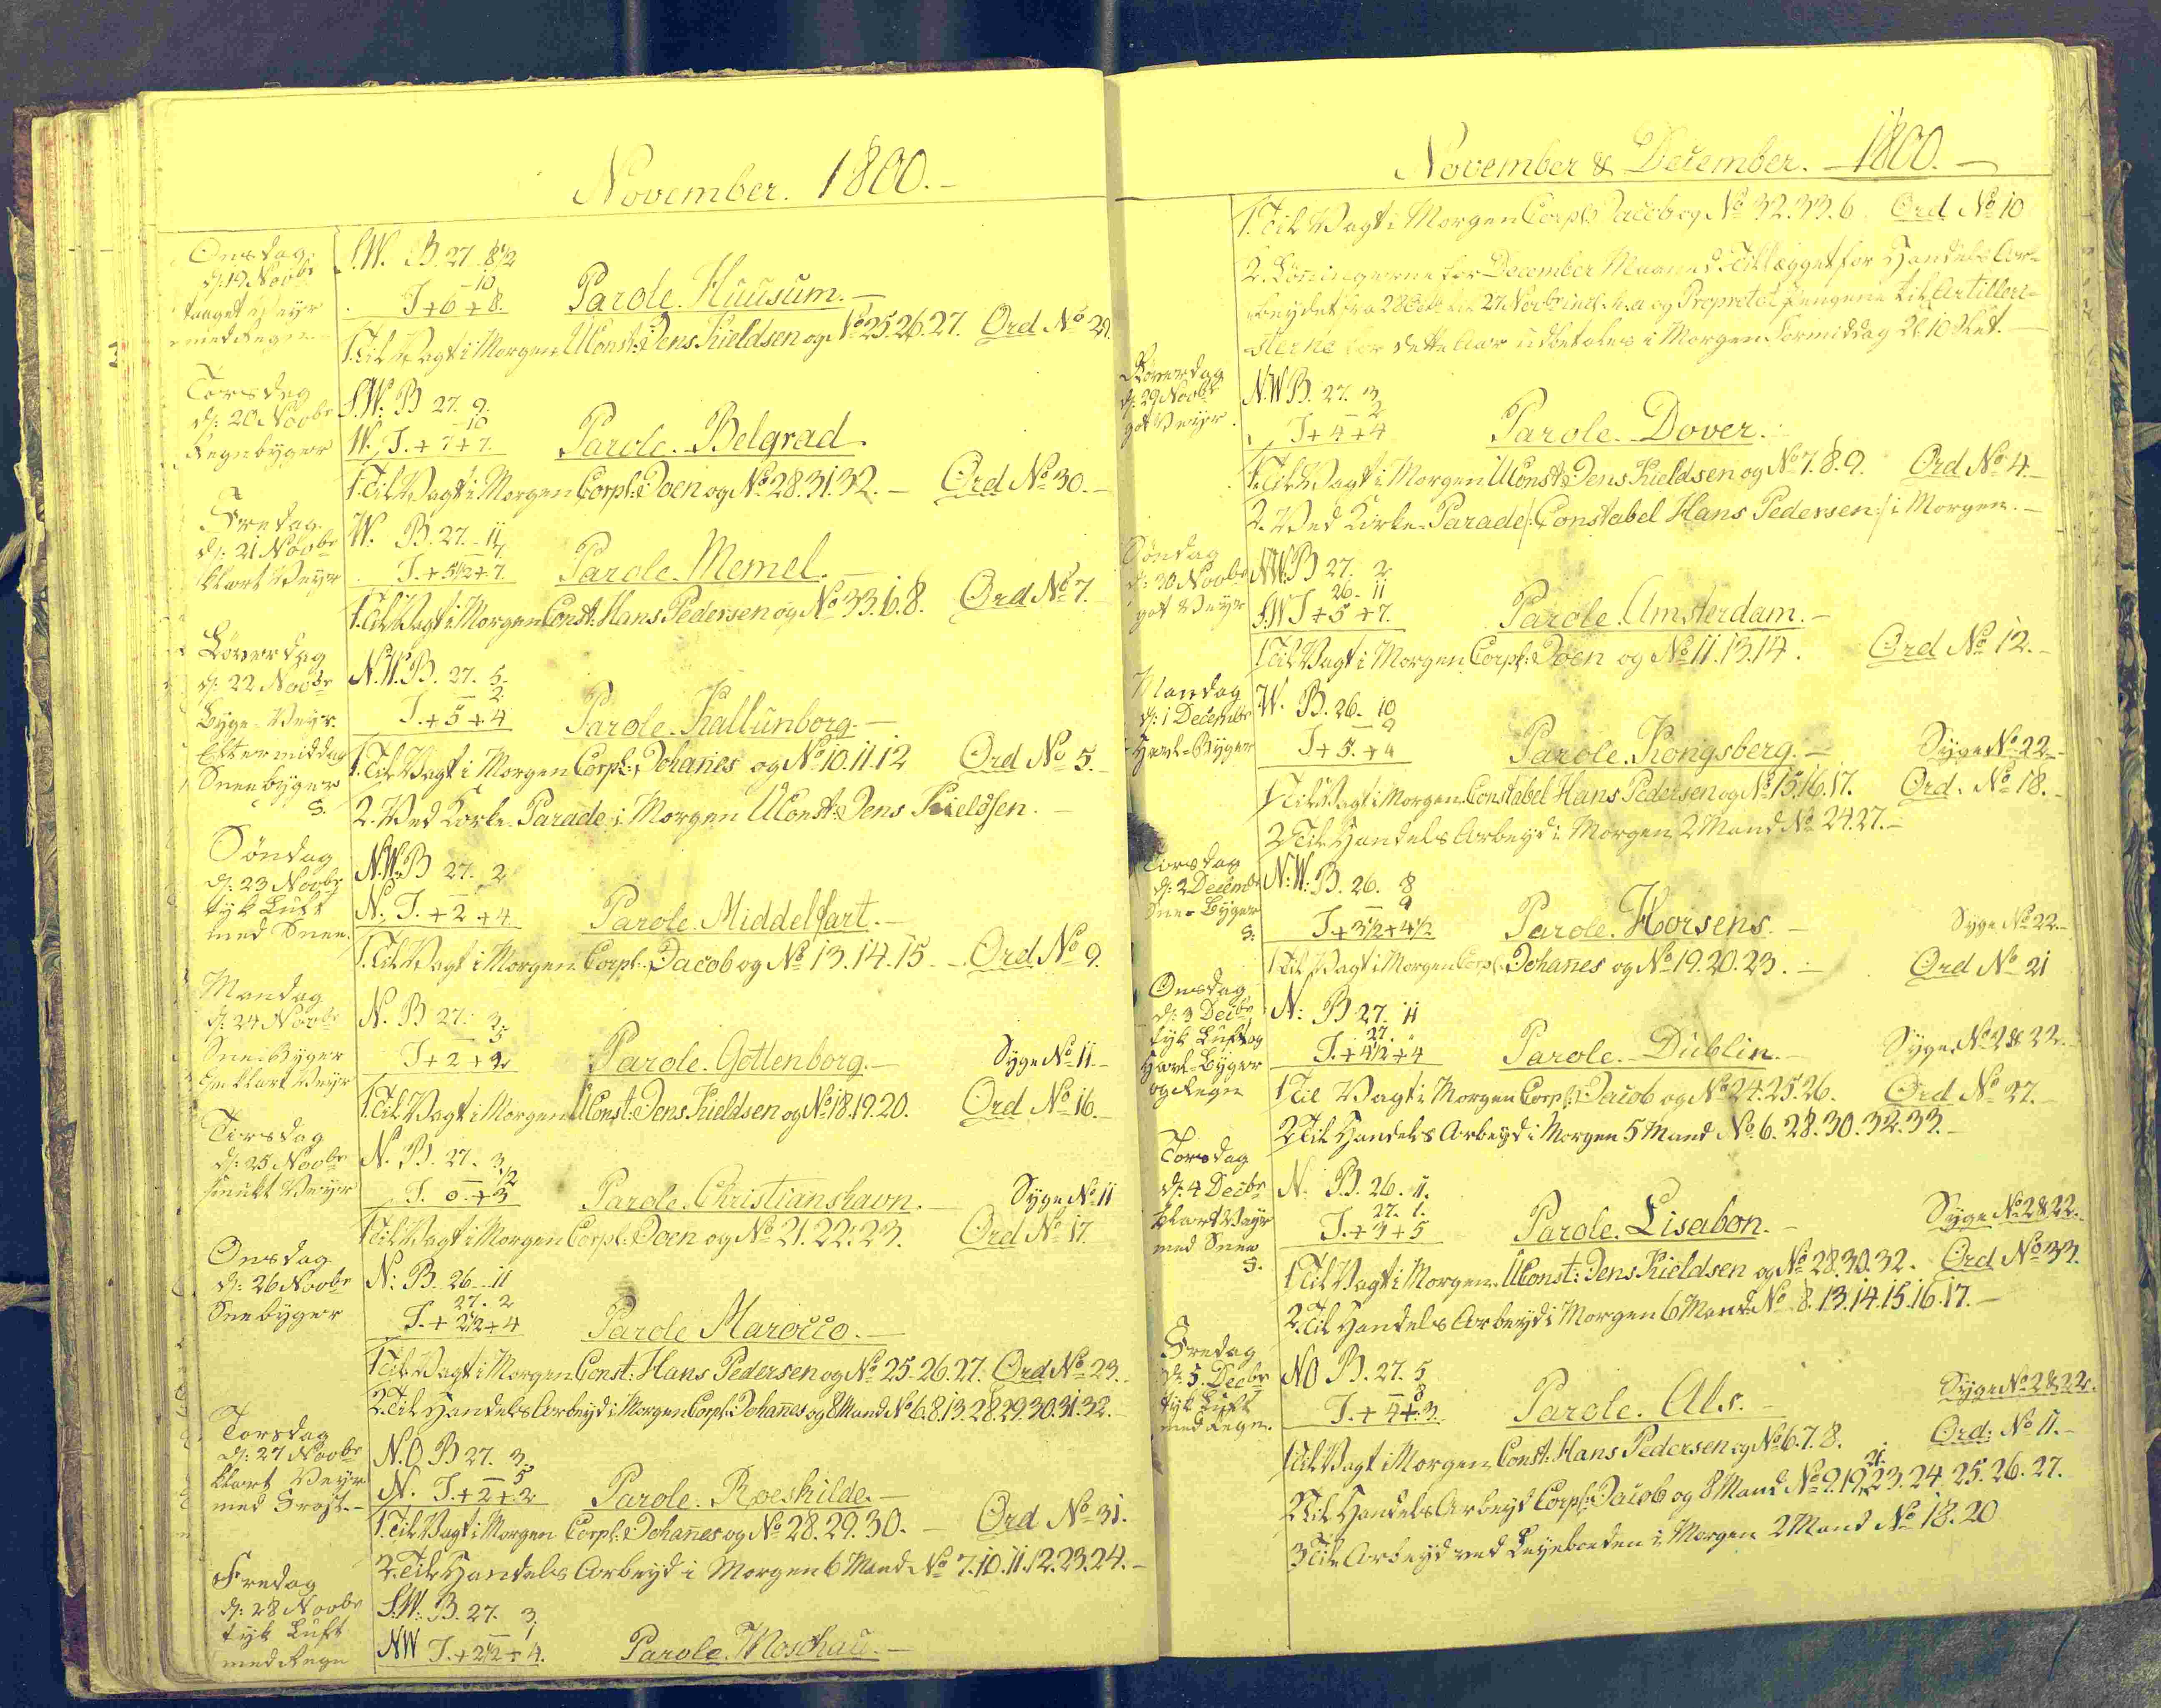 November. 1800.
Onsdag
d: 19 Novbr
taaget Veyr
med Regn
S.W. B. 27. 8 1/2
10
T + 6 + 8. Parole. Huusum.
1. Til Vagt i Morgen UConst: Jens Kieldsen og No 25. 26. 27. Ord No 29.
Torsdag
d: 20 Novbr
Regnbyger
S.W. B 27. 9.
10
W. T. + 7 + 7. Parole. Belgrad.
1. Til Vagt i Morgen Corpl: Joen og No 28. 31. 32. Ord No 30.
Fredag
d: 21 Novbr
klart Veyr
W. B. 27. 11
7
T. + 5 1/2 + 7. Parole. Memel.
1. Til Vagt i Morgen Const: Hans Pedersen og No 33. 6. 8. Ord No 7.
Löverdag
d: 22 Novbr
Byge-Veyr.
Eftermiddag
Sneebyger
S.
N.W. B. 27. 5.
2.
T. + 5 + 4 Parole. Kallunborg.
1. Til Vagt i Morgen Corpl: Johanes og No 10. 11. 12 Ord No 5.
2. Ved Kirke-Parade i Morgen UConst: Jens Kieldsen.
Söndag
d: 23 Novbr
tyk Luft
med Snee.
N.W. B 27. 2
N. T. + 2 + 4. Parole. Middelfart.
1. Til Vagt i Morgen Corpl: Jacob og No 13. 14. 15. Ord No 9.
Mandag
d: 24 Novbr
Snee Byger
klart Veyr
N. B 27. 3.
5
T + 2 + 2 Parole. Gottenborg. Syge No 11.
1. Til Vagt i Morgen UConst: Jens Kieldsen og No 18. 19. 20. Ord No 16.
Tirsdag
d: 25 Novbr
smukt Veyr
N. B. 27. 3
1/2
T. 0 + 3 Parole. Christianshavn. Syge No 11
1. Til Vagt i Morgen Corpl: Joen og No 21. 22. 23. Ord No 17.
Onsdag
d: 26 Novbr
Sneebyger
N: B. 26. 11
27. 2
T. + 2 1/2 + 4 Parole Marocco.
1. Til Vagt i Morgen Const: Hans Pedersen og No 25. 26. 27. Ord No 23.
2. Til Handels Arbeyd i Morgen Corpl: Johanes og 8 Mand No 6. 8. 13. 28. 29. 30. 31. 32.
Torsdag
d: 27 Novbr
klart Veyr
med Frost.
N.O. B 27. 3.
5
N. T. + 2 + 2 Parole. Roeskilde.
1. Til Vagt i Morgen Corpl: Johanes og No 28. 29. 30. Ord No 31.
2. Til Handels Arbeyd i Morgen 6 Mand No 7. 10. 11. 12. 23. 24.
Fredag
d: 28 Novbr
tyk Luft
med Regn
S.W. B. 27. 3.
1
NW T. + 2 1/2 + 4. Parole. Moschau.
November & December. 1800.
1. Til Vagt i Morgen Corpl: Jacob og No 32. 33. 6 Ord No 10
2. Löningerne for December Maaned Tillægget for Handels Ar-
beydet fra 28 Octb til 27. Novbr incl. og Propretet Pengene til Artilleri-
sterne for dette Aar udbetales i Morgen Formiddag Kl 10 Slet.
Löverdag
d: 29 Novbr
got Veyr.
N.W B. 27. 3
2
T + 4 + 4 Parole. Dover.
1. Til Vagt i Morgen UConst: Jens Kieldsen og No 7. 8. 9. Ord No 4.
2. Ved Kirke-Parade /: Constabel Hans Pedersen :/ i Morgen.
Söndag
d: 30 Novbr
got Veyr
N.W. B 27. 2
26. 11
S.W T + 5 + 7. Parole. Amsterdam.
1. Til Vagt i Morgen Corpl: Joen og No 11. 13. 14. Ord No 12.
Mandag
d: 1 Decembr
Havl-Byger
W. B. 26. 10
9
T + 5. + 4 Parole. Kongsberg. Syge No 22.
1 Til Vagt i Morgen Constabel Hans Pedersen og No 15. 16. 17. Ord. No 18.
2 Til Handels Arbeyd i Morgen 2 Mand No 24. 27.
Tirsdag
d: 2 Decemb
Snee-Byger
S.
N:W: B. 26. 8
9
T + 3 1/2 + 4 1/2 Parole. Horsens. Syge No 22.
1 Til Vagt i Morgen Corpl: Johanes og No 19. 20. 23. Ord No 21
Onsdag
d: 3 Decbr
tyk Luft og
Havl-Byger
og Regn
N: B. 27. 11
27.
T. + 4 1/2 + 4 Parole. Dublin. Syge No 2 & 22.
1 Til Vagt i Morgen Corpl: Jacob og No 24. 25. 26. Ord No 27.
2 Til Handels Arbeyd i Morgen 5 Mand No 6. 28. 30. 32. 33.
Torsdag
d: 4 Decbr
klart Veyr
med Snee
S.
N: B. 26. 11.
27. 1.
T. + 3 + 5 Parole. Lisabon. Syge No 2 & 22.
1 Til Vagt i Morgen UConst: Jens Kieldsen og No 28. 30. 32. Ord No 33.
2. Til Handels Arbeyd i Morgen 6 Mand No 8. 13. 14. 15. 16. 17.
Fredag
d: 5. Decbr
tyk Luft
med Regn.
NO B. 27. 5
8
T. + 4 + 3. Parole. Als. Syge No 2 & 22.
1 Til Vagt i Morgen Const: Hans Pedersen og No 6. 7. 8. Ord: No 11.
21.
2 Til Handels Arbeyd Corpl: Jacob og 8 Mand No 9. 19. 23. 24. 25. 26. 27.
3 Til Arbeyd ved i Morgen 2 Mand No 18. 20